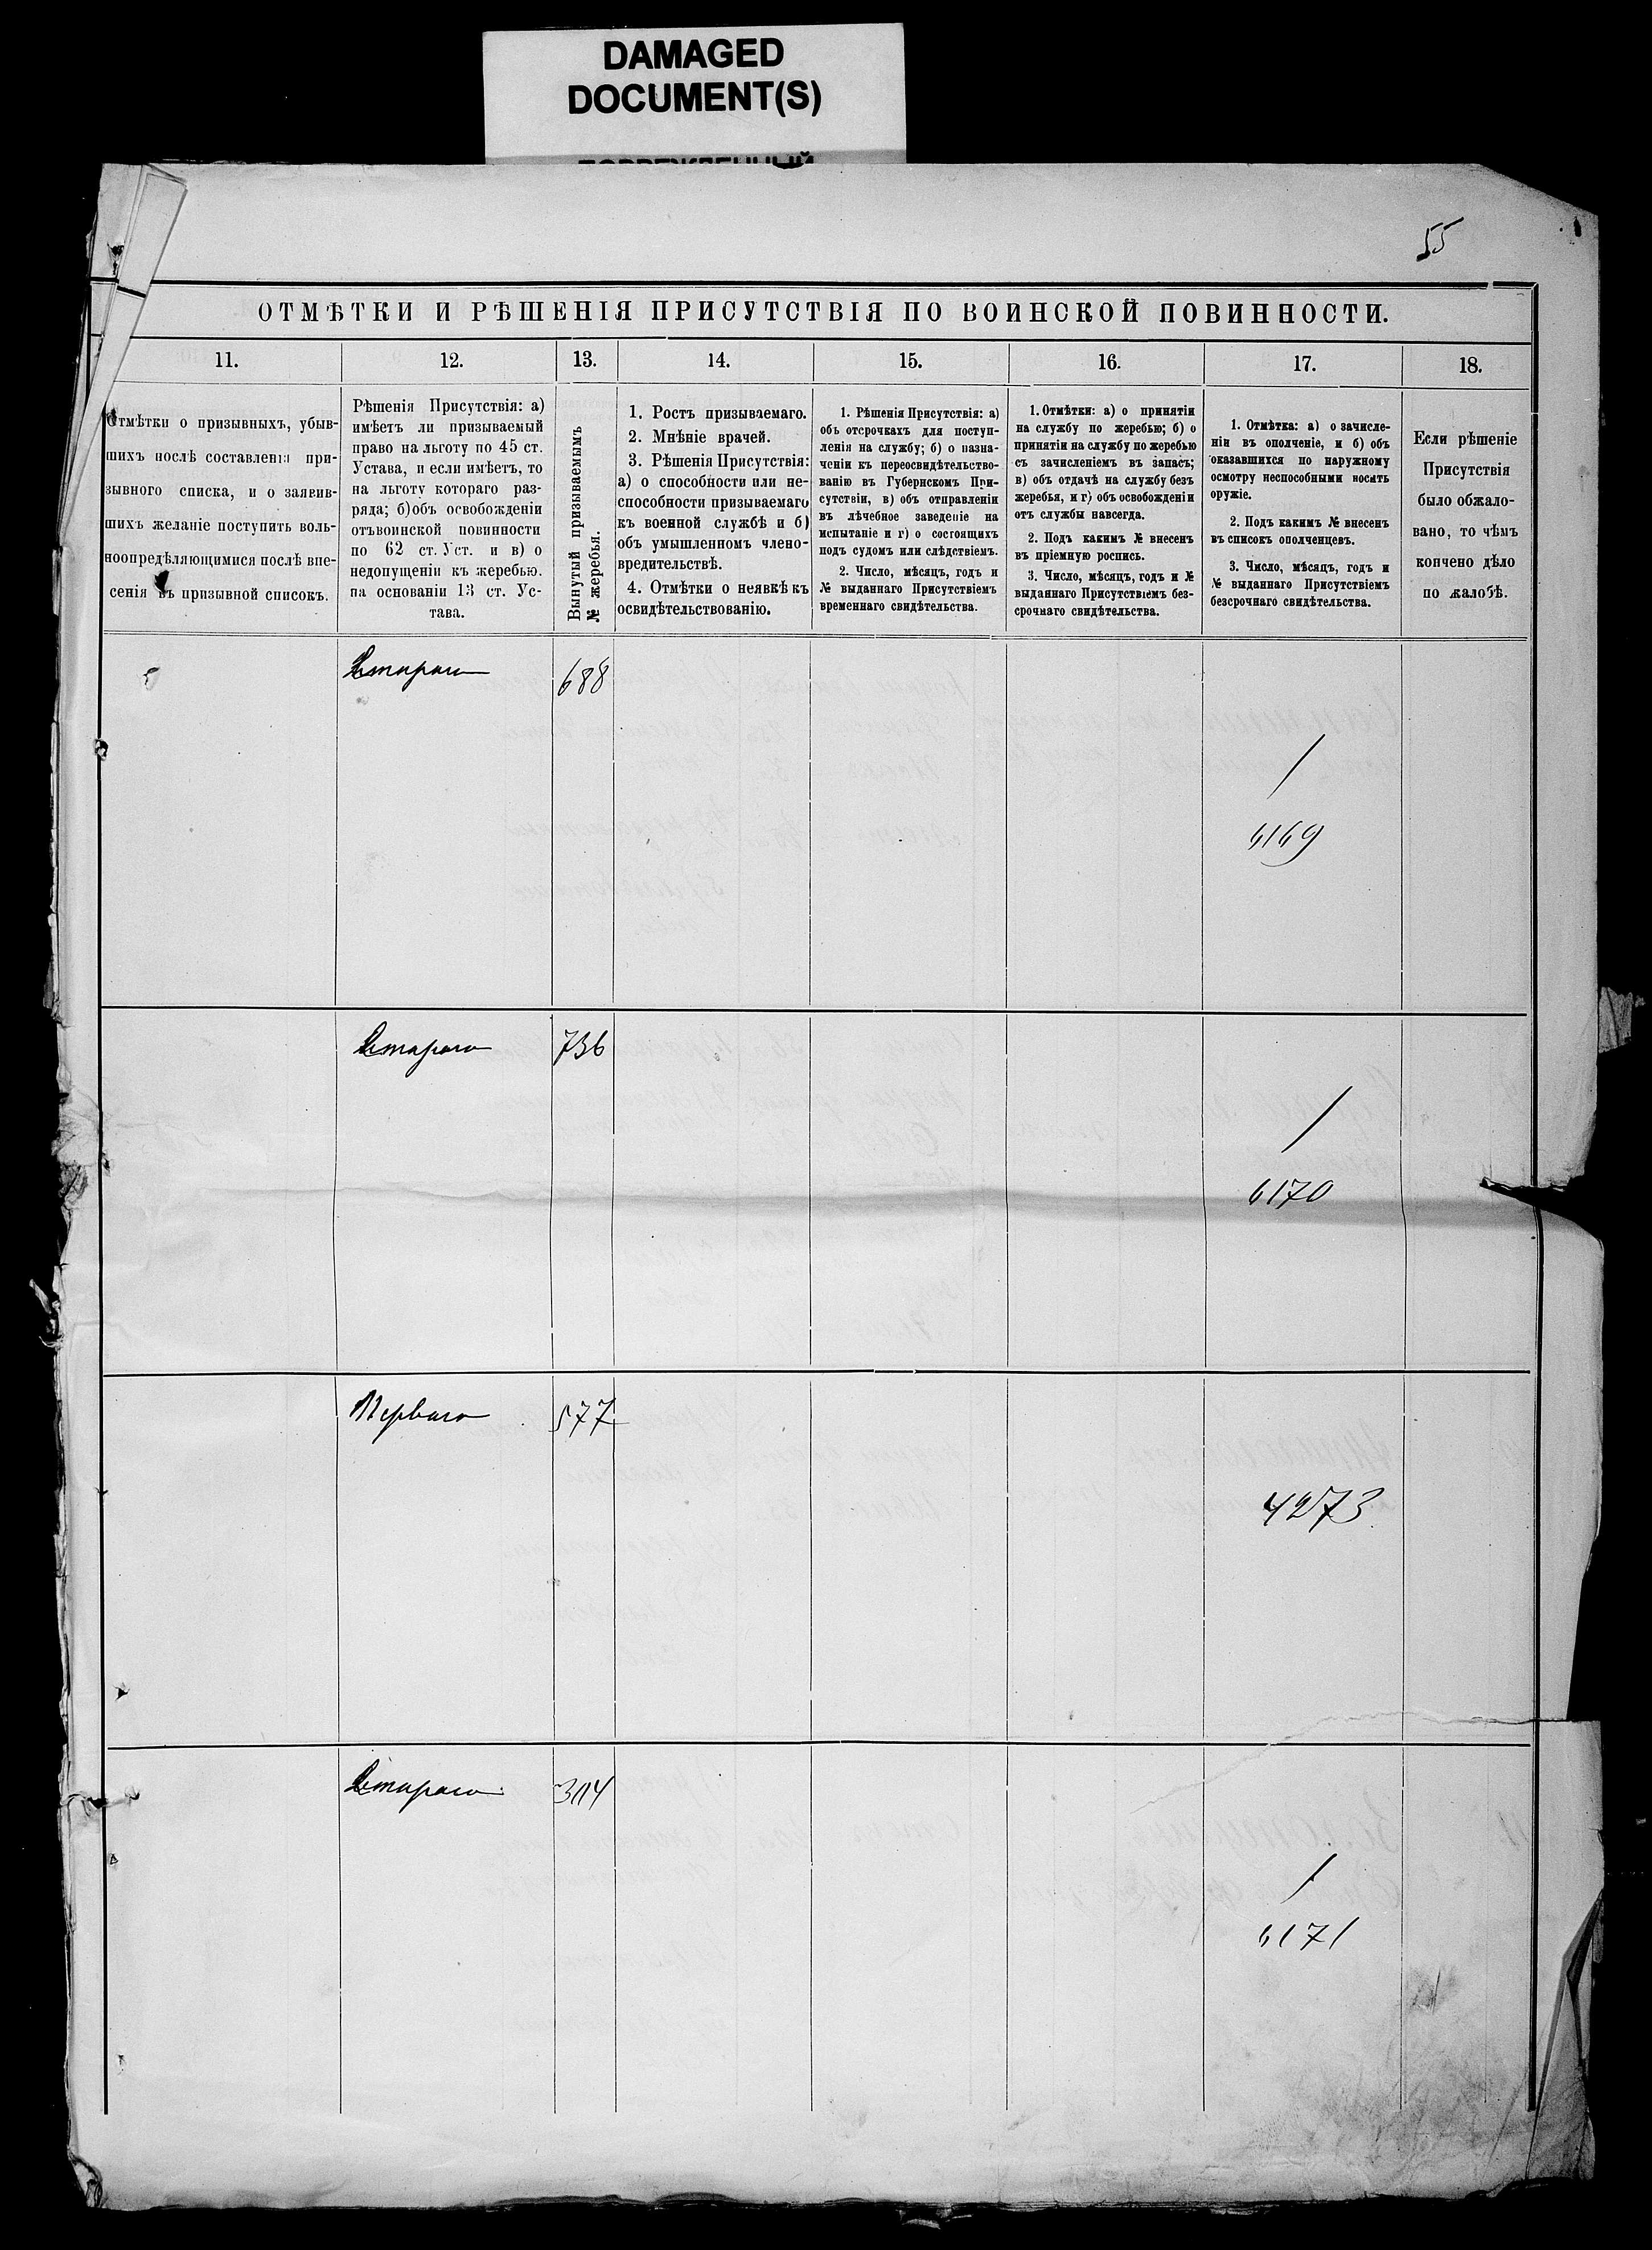 DAMAGED
DOCUMENT(S)
55
ОТМѢТКИ И РѢШЕНІЯ ПРИСУТСТВІЯ ПО ВОИНСКОЙ ПОВИННОСТИ.
11.
12.
13.
14.
15.
16.
17.
18.
Отмѣтки о призывныхъ, убыв-
шихъ послѣ составленія при-
зывного списка, и о заявив-
шихъ желаніе поступить воль-
ноопредѣляющимися послѣ вне-
сенія въ призывной списокъ.
Рѣшенія Присутствія: а)
имѣетъ ли призываемый
право на льготу по 45 ст.
Устава, и если имѣетъ, то
на льготу котораго раз-
ряда; б) объ освобожденіи
отъ воинской повинности
по 62 ст. Уст. и в) о
недопущеніи къ жеребью.
на основаніи 13 ст. Ус-
тава.
Вынутый призываемымъ
№ жеребья.
1. Ростъ призываемаго.
2. Мнѣніе врачей.
3. Рѣшенія Присутствія:
а) о способности или не-
способности призываемаго
къ военной службѣ и б)
объ умышленномъ члено-
вредительствѣ.
4. Отмѣтки о неявкѣ къ
освидѣтельствованію.
1. Рѣшенія Присутствія: а)
объ отсрочкахъ для поступ-
ленія на службу; б) о назна-
ченіи къ переосвидѣтельство-
ванію въ Губернскомъ При-
сутствіи, в) объ отправленіи
въ лѣчебное заведеніе на
испытаніе и г) о состоящихъ
подъ судомъ или слѣдствіемъ.
2. Число, мѣсяцъ, годъ и
№ выданнаго Присутствіемъ
временнаго свидѣтельства.
1. Отмѣтки: а) о принятіи
на службу по жеребью; б) о
принятіи на службу по жеребью
съ зачисленіемъ въ запасъ;
в) объ отдачѣ на службу безъ
жеребья, и г) объ освобожденіи
отъ службы навсегда.
2. Подъ какимъ № внесенъ
въ пріемную роспись.
3. Число, мѣсяцъ, годъ и №
выданнаго Присутствіемъ без-
срочнаго свидѣтельства.
1. Отмѣтка: а) о зачисле-
ніи въ ополченіе, и б) объ
оказавшихся по наружному
осмотру неспособными носить
оружіе.
2. Подъ какимъ № внесенъ
въ списокъ ополченцевъ.
3. Число, мѣсяцъ, годъ и
№ выданнаго Присутствіемъ
безсрочнаго свидѣтельства.
Если рѣшеніе
Присутствія
было обжало-
вано, то чѣмъ
кончено дѣло
по жалобѣ.
Втораго 688
/
6169
Втораго 736
/
6170
Перваго 577
4273
Втораго 304
/
6171